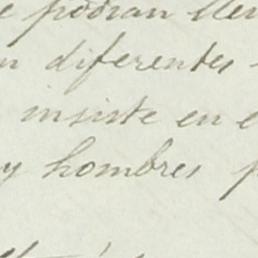 e podrian lle
n diferentes
insiste en e
y hombres p